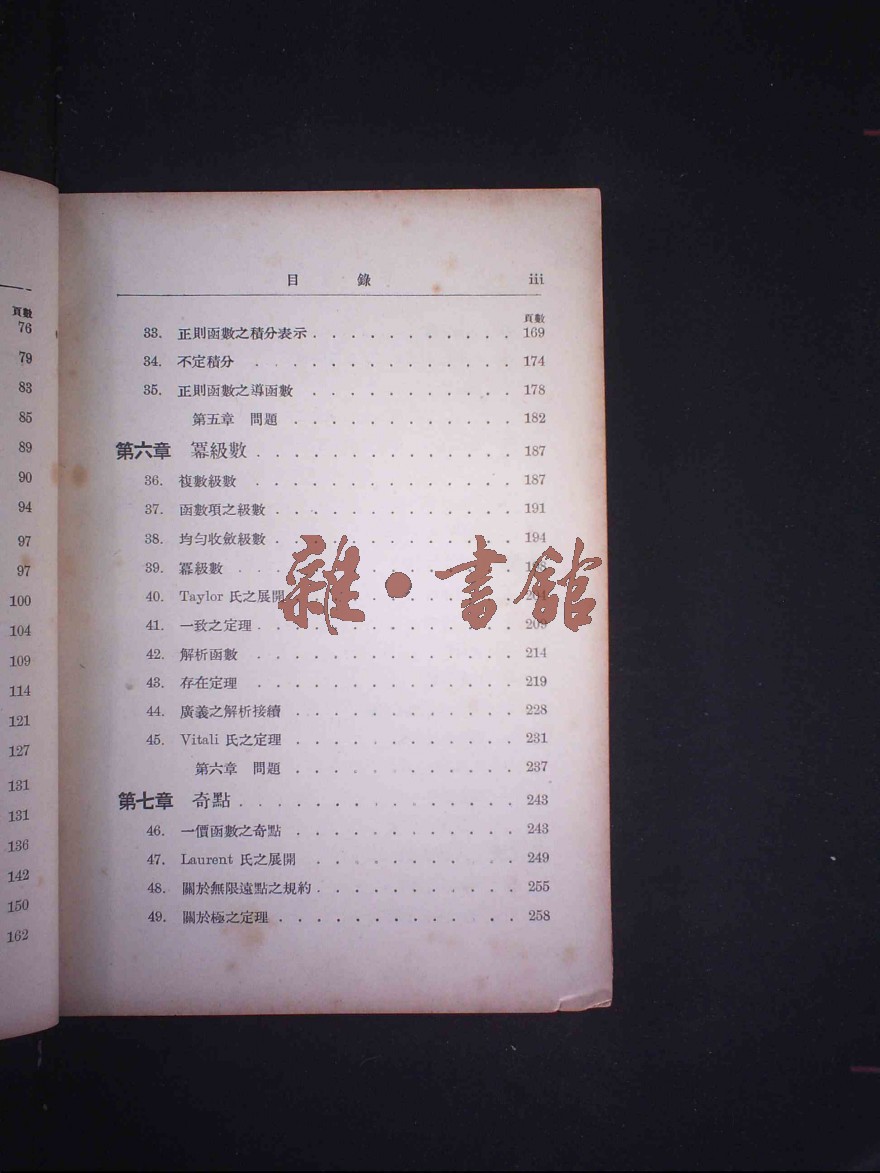 頁數
76
79
83
85
89
90
94
97
97
100
104
109
114
121
127
131
131
136
142
150
162
目 錄 iii
頁數
33. 正則函數之積分表示 . . . . . . . . . . . 169
34. 不定積分 . . . . . . . . . . . . . . 174
35. 正則函數之導函數 . . . . . . . . . . . 178
第五章 問題 . . . . . . . . . . . . 182
第六章 冪級數 . . . . . . . . . . . . . . 187
36. 複數級數 . . . . . . . . . . . . . . 187
37. 函數項之級數 . . . . . . . . . . . . . 191
38. 均勻收斂級數 . . . . . . . . . . . . . 194
39. 冪級數 . . . . . . . . . . . . . . .
40. Taylor 氏之展開 . . . . . . . . . . . .
41. 一致之定理 . . . . . . . . . . . . . . 209
42. 解析函數 . . . . . . . . . . . . . . 214
43. 存在定理 . . . . . . . . . . . . . . 219
44. 廣義之解析接續 . . . . . . . . . . . . 228
45. Vitali 氏之定理 . . . . . . . . . . . . 231
第六章 問題 . . . . . . . . . . . . 237
第七章 奇點 . . . . . . . . . . . . . . . 243
46. 一價函數之奇點 . . . . . . . . . . . . 243
47. Laurent 氏之展開 . . . . . . . . . . . 249
48. 關於無限遠點之規約 . . . . . . . . . . . 255
49. 關於極之定理 . . . . . . . . . . . . . 258
雜·書館